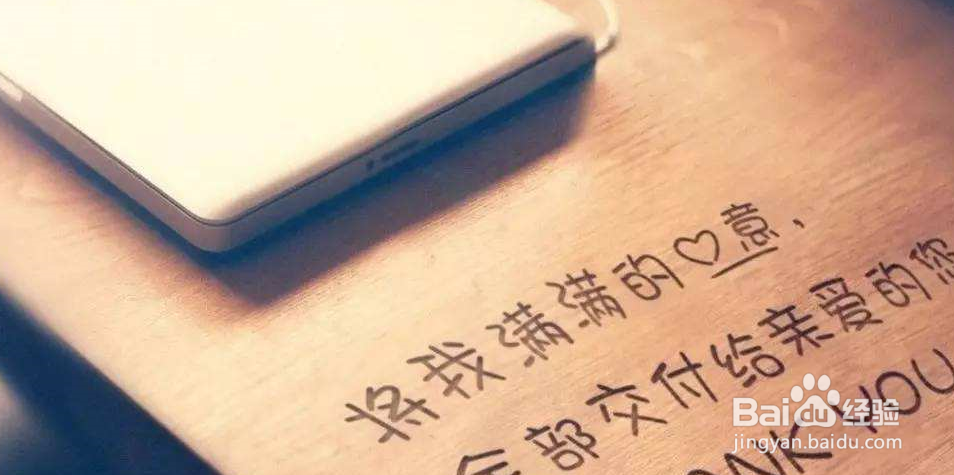 将我满满的♡意、
全部交付给亲爱的您
ANK YOU
Baidu经验
jingyan.baidu.com